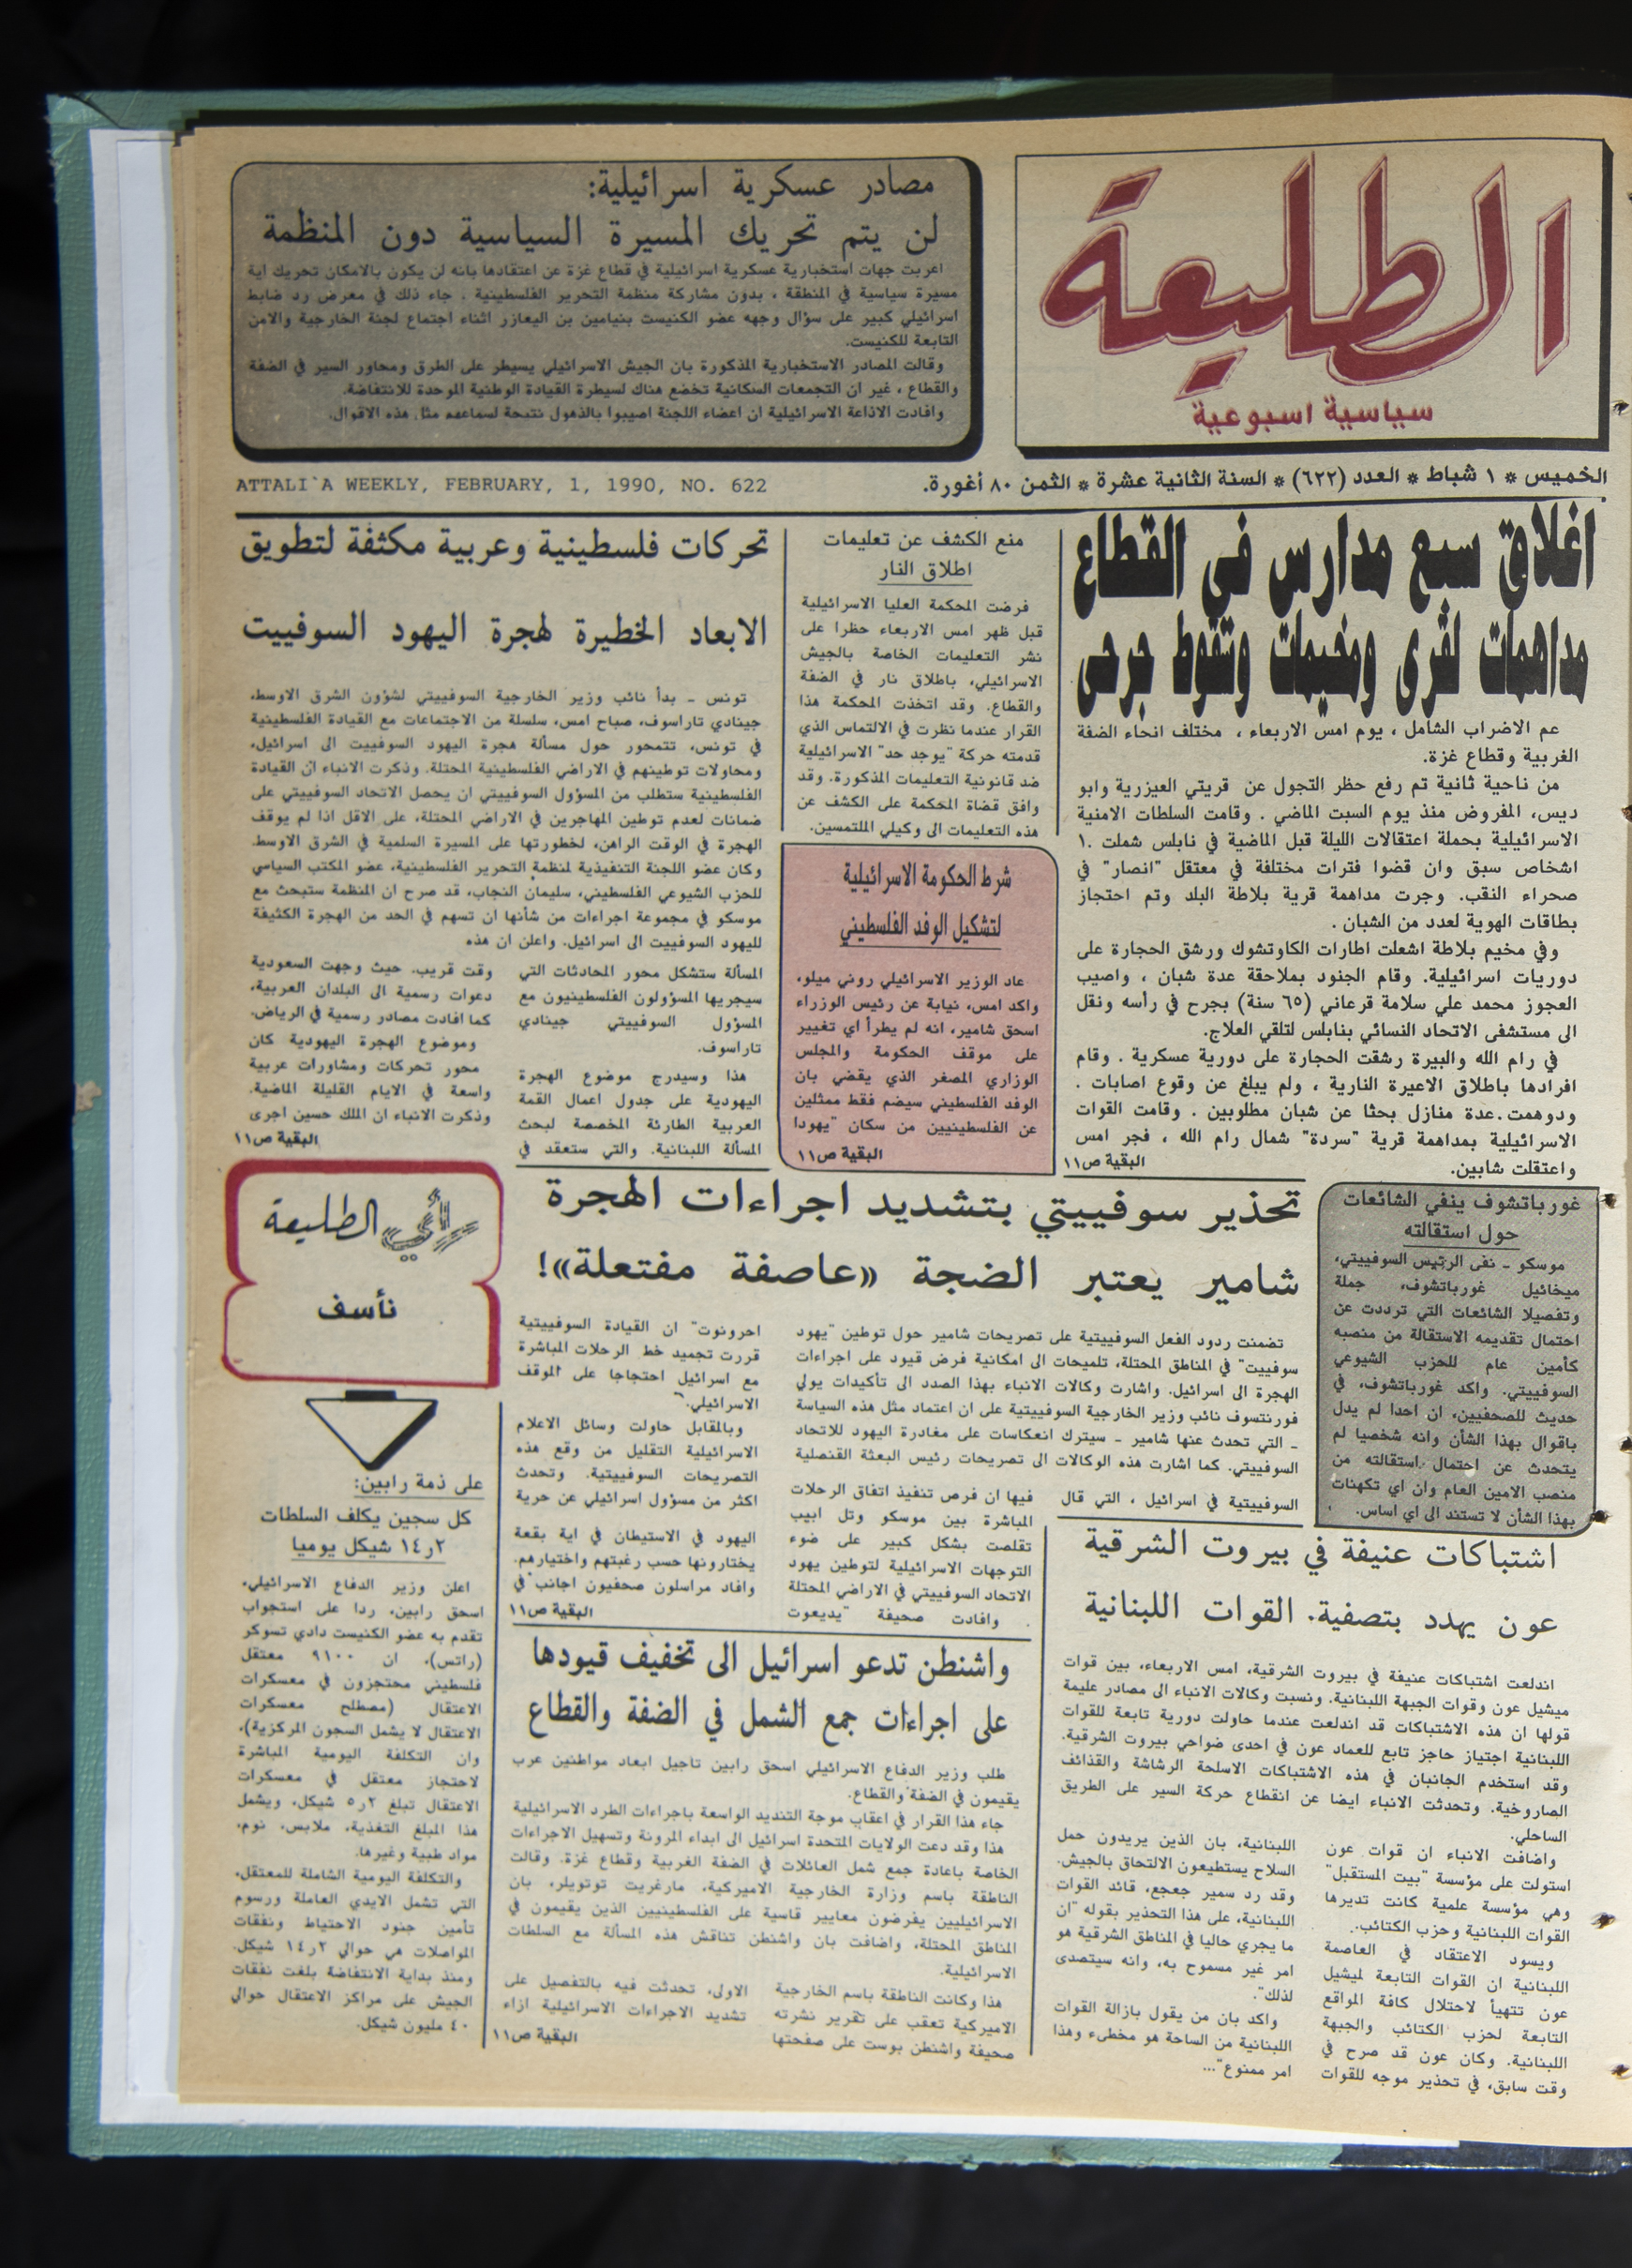 الطليعة
سياسية اسبوعية
مصادر عسكرية اسرائيلية:
لن يتم تحريك المسيرة السياسية دون المنظمة
اعربت جهات استخبارية عسكرية اسرائيلية في قطاع غزة عن اعتقادها بانه لن يكون بالامكان تحريك اية
مسيرة سياسية في المنطقة ، بدون مشاركة منظمة التحرير الفلسطينية . جاء ذلك في معرض رد ضابط
اسرائيلي كبير على سؤال وجهه عضو الكنيست بنيامين بن اليعازر اثناء اجتماع لجنة الخارجية والامن
التابعة للكنيست.
وقالت المصادر الاستخبارية المذكورة بان الجيش الاسرائيلي يسيطر على الطرق ومحاور السير في الضفة
والقطاع ، غير ان التجمعات السكانية تخضع هناك لسيطرة القيادة الوطنية الموحدة للانتفاضة.
وافادت الاذاعة الاسرائيلية ان اعضاء اللجنة اصيبوا بالذهول نتيجة لسماعهم مثل هذه الاقوال.
الخميس * ١ شباط * العدد (٦٢٢) * السنة الثانية عشرة * الثمن ٨٠ أغورة.
ATTALI`A WEEKLY, FEBRUARY, 1, 1990, NO. 622
اغلاق سبع مدارس في القطاع
مداهمات لقرى ومخيمات وسقوط جرحى
عم الاضراب الشامل ، يوم امس الاربعاء ، مختلف انحاء الضفة
الغربية وقطاع غزة.
من ناحية ثانية تم رفع حظر التجول عن قريتي العيزرية وابو
ديس، المفروض منذ يوم السبت الماضي . وقامت السلطات الامنية
الاسرائيلية بحملة اعتقالات الليلة قبل الماضية في نابلس شملت ١٠
اشخاص سبق وان قضوا فترات مختلفة في معتقل "انصار" في
صحراء النقب. وجرت مداهمة قرية بلاطة البلد وتم احتجاز
بطاقات الهوية لعدد من الشبان .
وفي مخيم بلاطة اشعلت اطارات الكاوتشوك ورشق الحجارة على
دوريات اسرائيلية. وقام الجنود بملاحقة عدة شبان ، واصيب
العجوز محمد علي سلامة قرعاني (٦٥ سنة) بجرح في رأسه ونقل
الى مستشفى الاتحاد النسائي بنابلس لتلقي العلاج.
في رام الله والبيرة رشقت الحجارة على دورية عسكرية . وقام
افرادها باطلاق الاعيرة النارية ، ولم يبلغ عن وقوع اصابات .
ودوهمت عدة منازل بحثا عن شبان مطلوبين . وقامت القوات
الاسرائيلية بمداهمة قرية "سردة" شمال رام الله ، فجر امس
واعتقلت شابين.
البقية ص١١
منع الكشف عن تعليمات
اطلاق النار
فرضت المحكمة العليا الاسرائيلية
قبل ظهر امس الاربعاء حظرا على
نشر التعليمات الخاصة بالجيش
الاسرائيلي، باطلاق نار في الضفة
والقطاع. وقد اتخذت المحكمة هذا
القرار عندما نظرت في الالتماس الذي
قدمته حركة "يوجد حد" الاسرائيلية
ضد قانونية التعليمات المذكورة. وقد
وافق قضاة المحكمة على الكشف عن
هذه التعليمات الى وكيلي الملتمسين.
شرط الحكومة الاسرائيلية
لتشكيل الوفد الفلسطيني
عاد الوزير الاسرائيلي روني ميلو،
واكد امس، نيابة عن رئيس الوزراء
اسحق شامير، انه لم يطرأ اي تغيير
على موقف الحكومة والمجلس
الوزاري المصغر الذي يقضي بان
الوفد الفلسطيني سيضم فقط ممثلين
عن الفلسطينيين من سكان "يهودا
البقية ص١١
تحركات فلسطينية وعربية مكثفة لتطويق
الابعاد الخطيرة لهجرة اليهود السوفييت
تونس - بدأ نائب وزير الخارجية السوفييتي لشؤون الشرق الاوسط،
جينادي تاراسوف، صباح امس، سلسلة من الاجتماعات مع القيادة الفلسطينية
في تونس، تتمحور حول مسألة هجرة اليهود السوفييت الى اسرائيل،
ومحاولات توطينهم في الاراضي الفلسطينية المحتلة. وذكرت الانباء ان القيادة
الفلسطينية ستطلب من المسؤول السوفييتي ان يحصل الاتحاد السوفييتي على
ضمانات لعدم توطين المهاجرين في الاراضي المحتلة، على الاقل اذا لم يوقف
الهجرة في الوقت الراهن، لخطورتها على المسيرة السلمية في الشرق الاوسط.
وكان عضو اللجنة التنفيذية لمنظمة التحرير الفلسطينية، عضو المكتب السياسي
للحزب الشيوعي الفلسطيني، سليمان النجاب، قد صرح ان المنظمة ستبحث مع
موسكو في مجموعة اجراءات من شأنها ان تسهم في الحد من الهجرة الكثيفة
لليهود السوفييت الى اسرائيل. واعلن ان هذه
المسألة ستشكل محور المحادثات التي
سيجريها المسؤولون الفلسطينيون مع
المسؤول السوفييتي جينادي
تاراسوف.
هذا وسيدرج موضوع الهجرة
اليهودية على جدول اعمال القمة
العربية الطارئة المخصصة لبحث
المسألة اللبنانية. والتي ستعقد في
وقت قريب. حيث وجهت السعودية
دعوات رسمية الى البلدان العربية،
كما افادت مصادر رسمية في الرياض.
وموضوع الهجرة اليهودية كان
محور تحركات ومشاورات عربية
واسعة في الايام القليلة الماضية.
وذكرت الانباء ان الملك حسين اجرى
البقية ص١١
غورباتشوف ينفي الشائعات
حول استقالته
موسكو - نفى الرئيس السوفييتي،
ميخائيل غورباتشوف، جملة
وتفصيلا الشائعات التي ترددت عن
احتمال تقديمه الاستقالة من منصبه
كأمين عام للحزب الشيوعي
السوفييتي. واكد غورباتشوف، في
حديث للصحفيين، ان احدا لم يدل
باقوال بهذا الشأن وانه شخصيا لم
يتحدث عن احتمال استقالته من
منصب الامين العام وان اي تكهنات
بهذا الشأن لا تستند الى اي اساس.
تحذير سوفييتي بتشديد اجراءات الهجرة
شامير يعتبر الضجة «عاصفة مفتعلة»!
تضمنت ردود الفعل السوفييتية على تصريحات شامير حول توطين "يهود
سوفييت" في المناطق المحتلة، تلميحات الى امكانية فرض قيود على اجراءات
الهجرة الى اسرائيل. واشارت وكالات الانباء بهذا الصدد الى تأكيدات يولي
فورنتسوف نائب وزير الخارجية السوفييتية على ان اعتماد مثل هذه السياسة
- التي تحدث عنها شامير - سيترك انعكاسات على مغادرة اليهود للاتحاد
السوفييتي. كما اشارت هذه الوكالات الى تصريحات رئيس البعثة القنصلية
السوفييتية في اسرائيل ، التي قال
فيها ان فرص تنفيذ اتفاق الرحلات
المباشرة بين موسكو وتل ابيب
تقلصت بشكل كبير على ضوء
التوجهات الاسرائيلية لتوطين يهود
الاتحاد السوفييتي في الاراضي المحتلة
. وافادت صحيفة "يديعوت
احرونوت" ان القيادة السوفييتية
قررت تجميد خط الرحلات المباشرة
مع اسرائيل احتجاجا على الموقف
الاسرائيلي.
وبالمقابل حاولت وسائل الاعلام
الاسرائيلية التقليل من وقع هذه
التصريحات السوفييتية. وتحدث
اكثر من مسؤول اسرائيلي عن حرية
اليهود في الاستيطان في اية بقعة
يختارونها حسب رغبتهم واختيارهم.
وافاد مراسلون صحفيون اجانب في
البقية ص١١
رأي الطليعة
نأسف
على ذمة رابين:
كل سجين يكلف السلطات
١٤ر٢ شيكل يوميا
اعلن وزير الدفاع الاسرائيلي،
اسحق رابين، ردا على استجواب
تقدم به عضو الكنيست دادي تسوكر
(راتس)، ان ٩١٠٠ معتقل
فلسطيني محتجزون في معسكرات
الاعتقال (مصطلح معسكرات
الاعتقال لا يشمل السجون المركزية)،
وان التكلفة اليومية المباشرة
لاحتجاز معتقل في معسكرات
الاعتقال تبلغ ٥ر٢ شيكل، ويشمل
هذا المبلغ التغذية، ملابس، نوم،
مواد طبية وغيرها.
والتكلفة اليومية الشاملة للمعتقل،
التي تشمل الايدي العاملة ورسوم
تأمين جنود الاحتياط ونفقات
المواصلات هي حوالي ١٤ر٢ شيكل.
ومنذ بداية الانتفاضة بلغت نفقات
الجيش على مراكز الاعتقال حوالي
٤٠ مليون شيكل.
واشنطن تدعو اسرائيل الى تخفيف قيودها
على اجراءات جمع الشمل في الضفة والقطاع
طلب وزير الدفاع الاسرائيلي اسحق رابين تاجيل ابعاد مواطنين عرب
يقيمون في الضفة والقطاع.
جاء هذا القرار في اعقاب موجة التنديد الواسعة باجراءات الطرد الاسرائيلية
هذا وقد دعت الولايات المتحدة اسرائيل الى ابداء المرونة وتسهيل الاجراءات
الخاصة باعادة جمع شمل العائلات في الضفة الغربية وقطاع غزة. وقالت
الناطقة باسم وزارة الخارجية الاميركية، مارغريت توتويلر، بان
الاسرائيليين يفرضون معايير قاسية على الفلسطينيين الذين يقيمون في
المناطق المحتلة، واضافت بان واشنطن تناقش هذه المسألة مع السلطات
الاسرائيلية.
هذا وكانت الناطقة باسم الخارجية
الاميركية تعقب على تقرير نشرته
صحيفة واشنطن بوست على صفحتها
الاولى، تحدثت فيه بالتفصيل على
تشديد الاجراءات الاسرائيلية ازاء
البقية ص١١
اشتباكات عنيفة في بيروت الشرقية
عون يهدد بتصفية القوات اللبنانية
اندلعت اشتباكات عنيفة في بيروت الشرقية، امس الاربعاء، بين قوات
ميشيل عون وقوات الجبهة اللبنانية. ونسبت وكالات الانباء الى مصادر عليمة
قولها ان هذه الاشتباكات قد اندلعت عندما حاولت دورية تابعة للقوات
اللبنانية اجتياز حاجز تابع للعماد عون في احدى ضواحي بيروت الشرقية.
وقد استخدم الجانبان في هذه الاشتباكات الاسلحة الرشاشة والقذائف
الصاروخية. وتحدثت الانباء ايضا عن انقطاع حركة السير على الطريق
الساحلي.
واضافت الانباء ان قوات عون
استولت على مؤسسة "بيت المستقبل"
وهي مؤسسة علمية كانت تديرها
القوات اللبنانية وحزب الكتائب.
ويسود الاعتقاد في العاصمة
اللبنانية ان القوات التابعة لميشيل
عون تتهيأ لاحتلال كافة المواقع
التابعة لحزب الكتائب والجبهة
اللبنانية. وكان عون قد صرح في
وقت سابق، في تحذير موجه للقوات
اللبنانية، بان الذين يريدون حمل
السلاح يستطيعون الالتحاق بالجيش.
وقد رد سمير جعجع، قائد القوات
اللبنانية، على هذا التحذير بقوله "ان
ما يجري حاليا في المناطق الشرقية هو
امر غير مسموح به، وانه سيتصدى
لذلك".
واكد بان من يقول بازالة القوات
اللبنانية من الساحة هو مخطىء وهذا
امر ممنوع"...